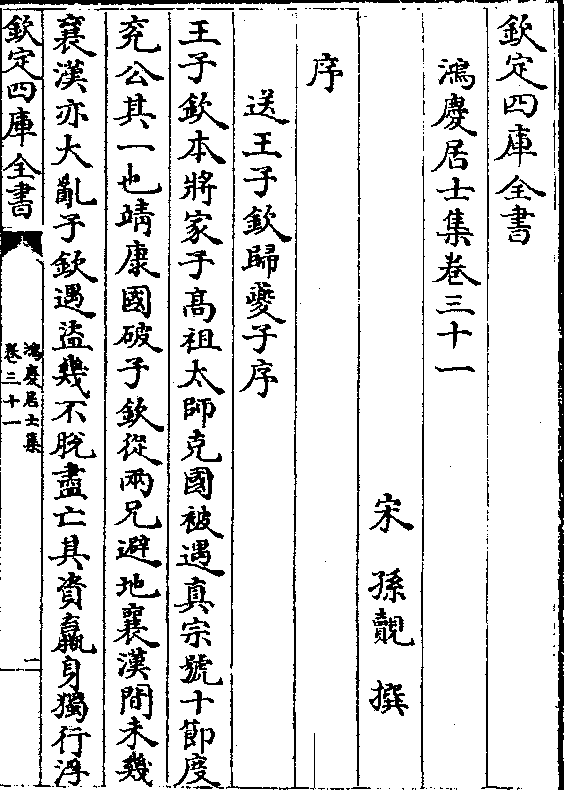 欽定四庫全書
鴻慶居士集卷三十一
宋 孫覿 撰
序
送王子欽歸夔子序
王子欽本將家子髙祖太師克國被遇真宗號十節度
兖公其一也靖康國破子欽從兩兄避地襄漢間未幾
襄漢亦大亂子欽遇盜幾不脫盡亡其資羸身獨行浮
欽定四庫全書
鴻慶居士集
卷三十一
一